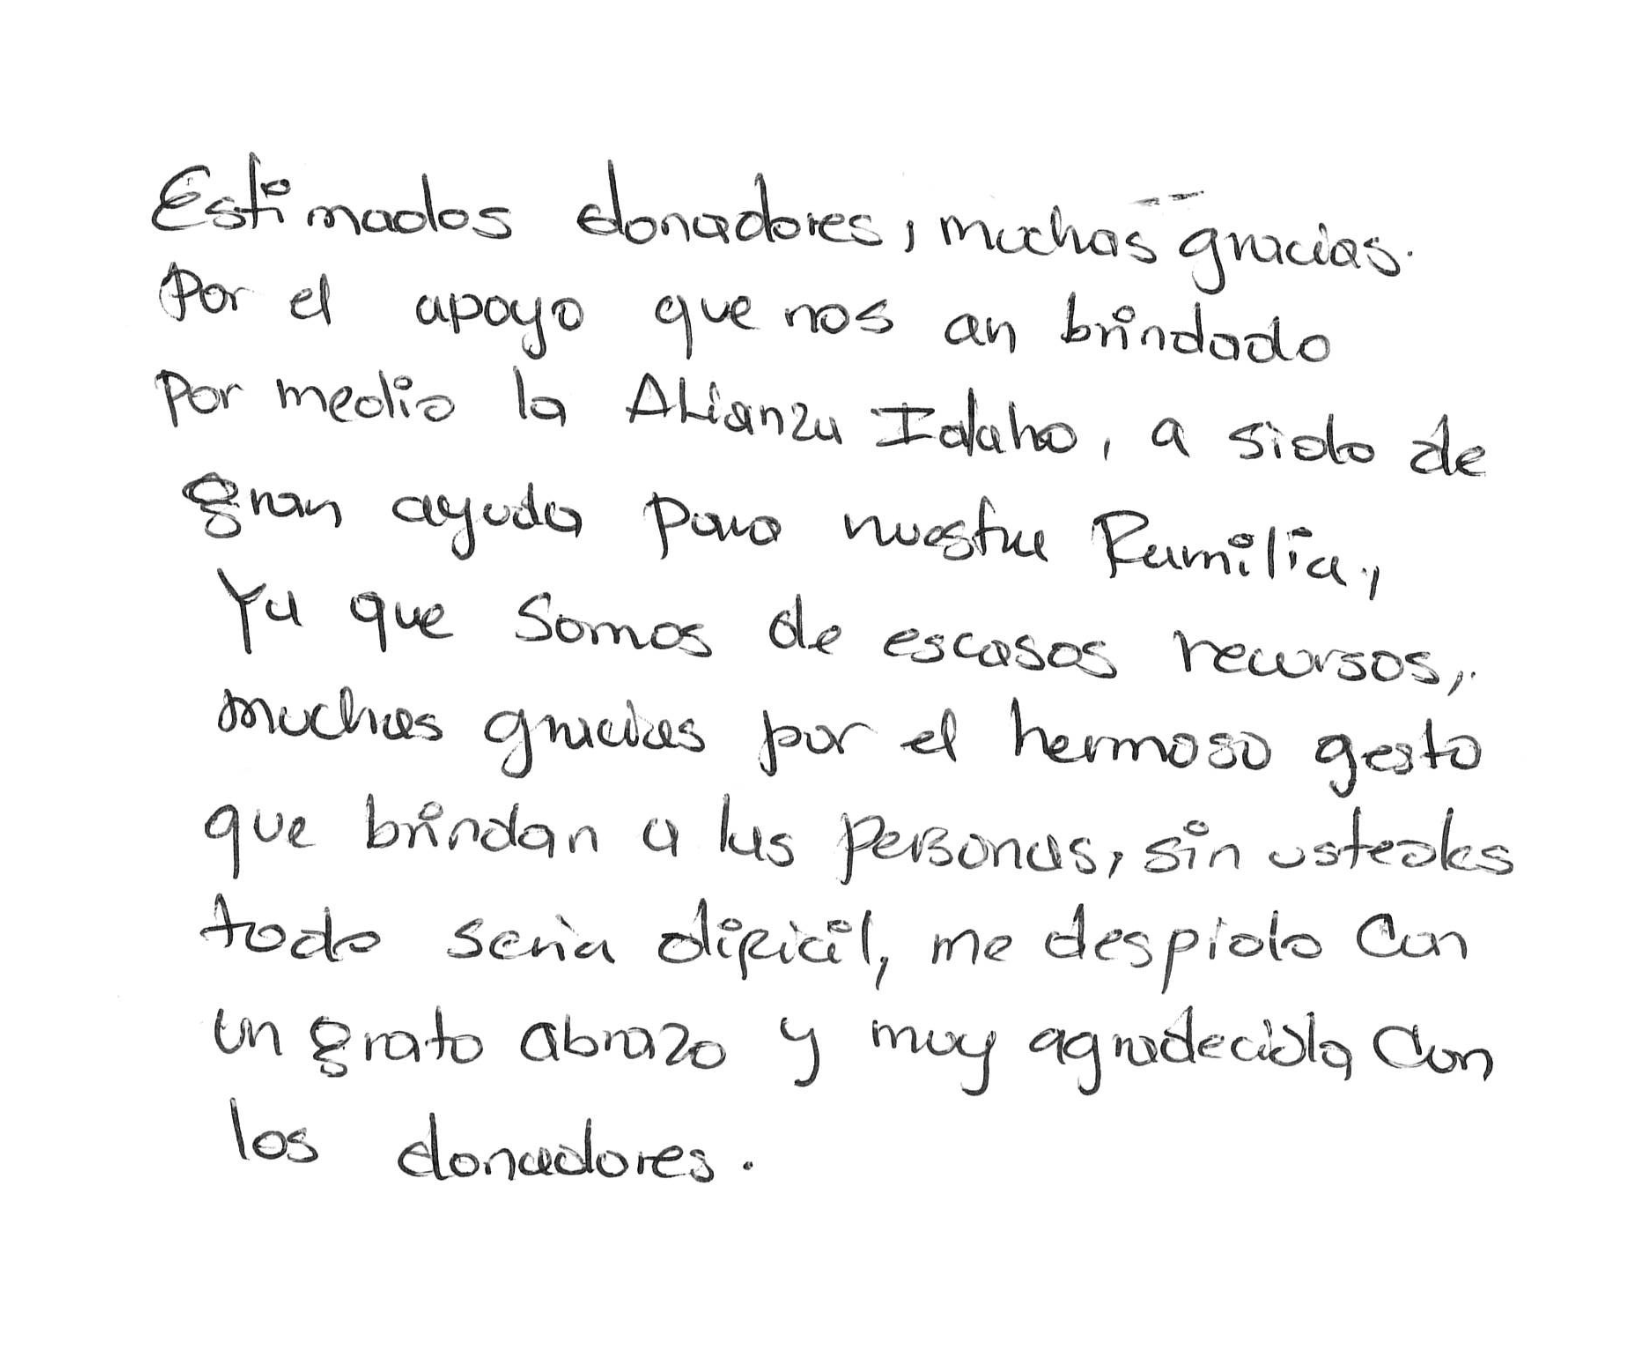 Estimados donadores, muchas gracias.
Por el apoyo que nos an brindado
Por medio la Alianza Idaho, a sido de
gran ayuda para nuestra Familia,
Ya que Somos de escasos recursos,
muchas gracias por el hermoso gesto
que brindan a las personas, sin ustedes
todo seria dificil, me despido Con
un grato abrazo y muy agradecida Con
los donadores.